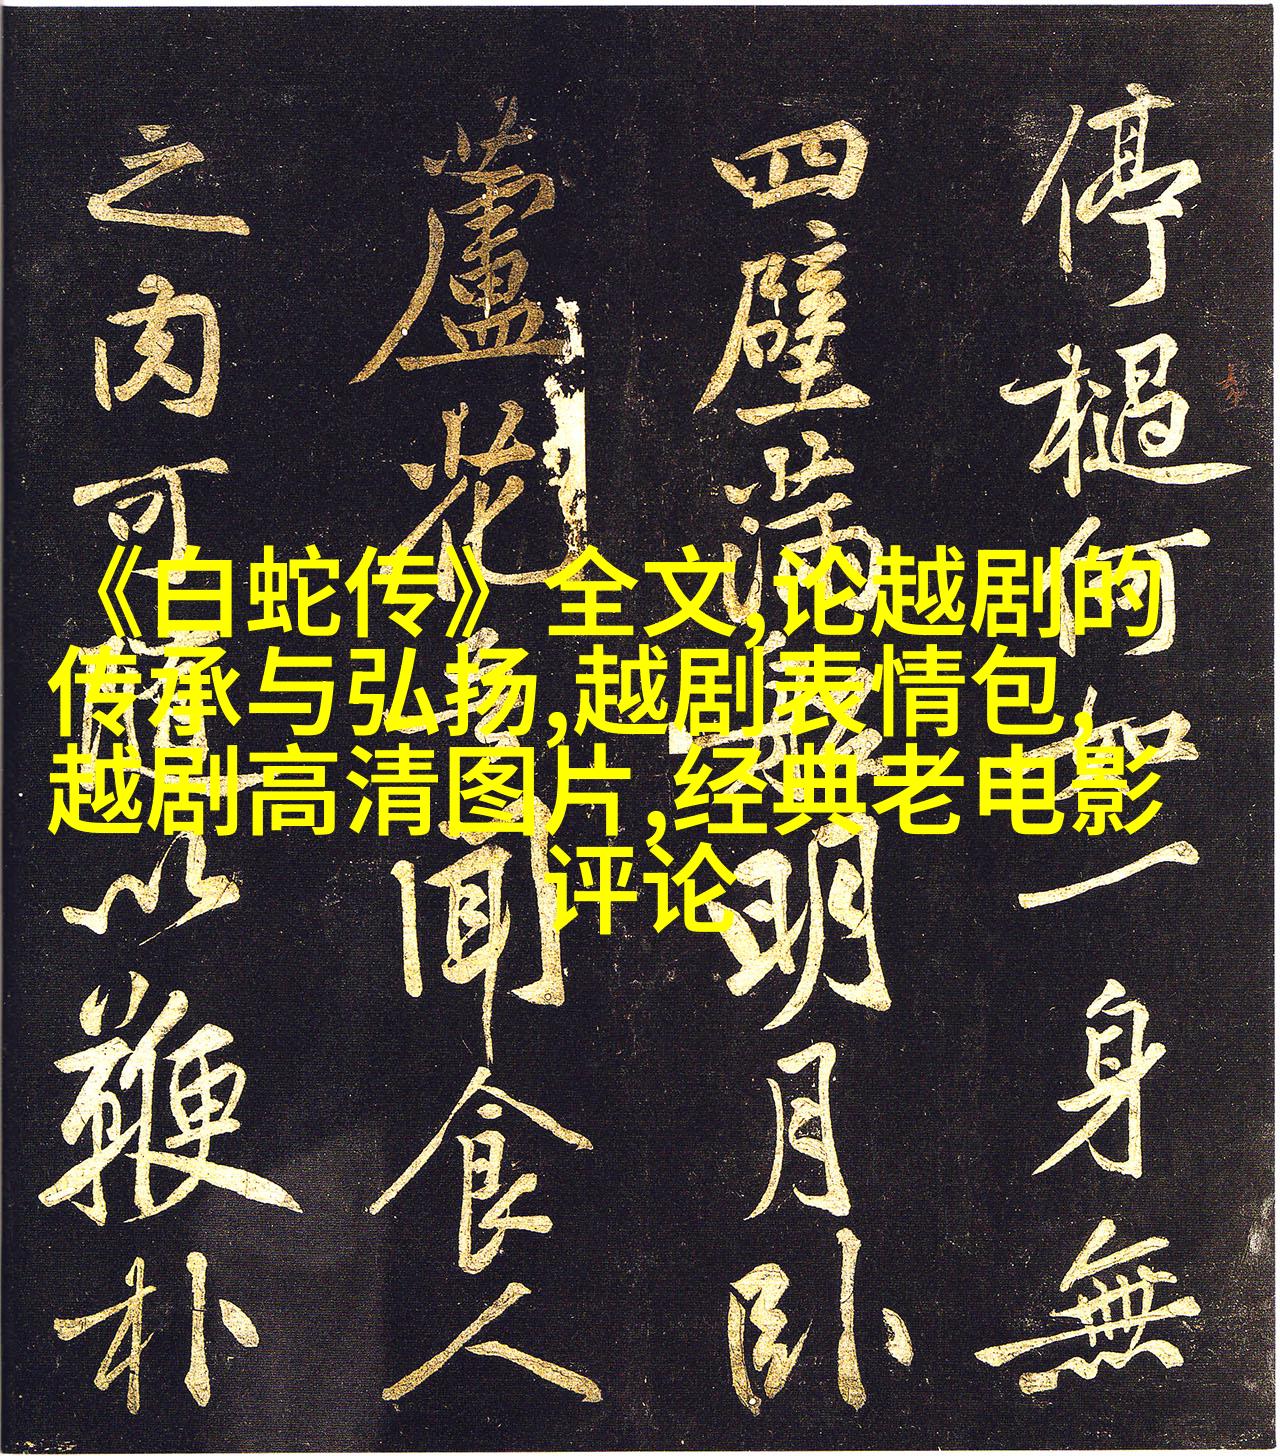 《白蛇传》全文,论越剧的
传承与弘扬,越剧表情包,
越剧高清图片,经典老电影
评论
停檛何如一身無
四壁滿明月臥
蘆花未聞食人
之肉可以鞭朴